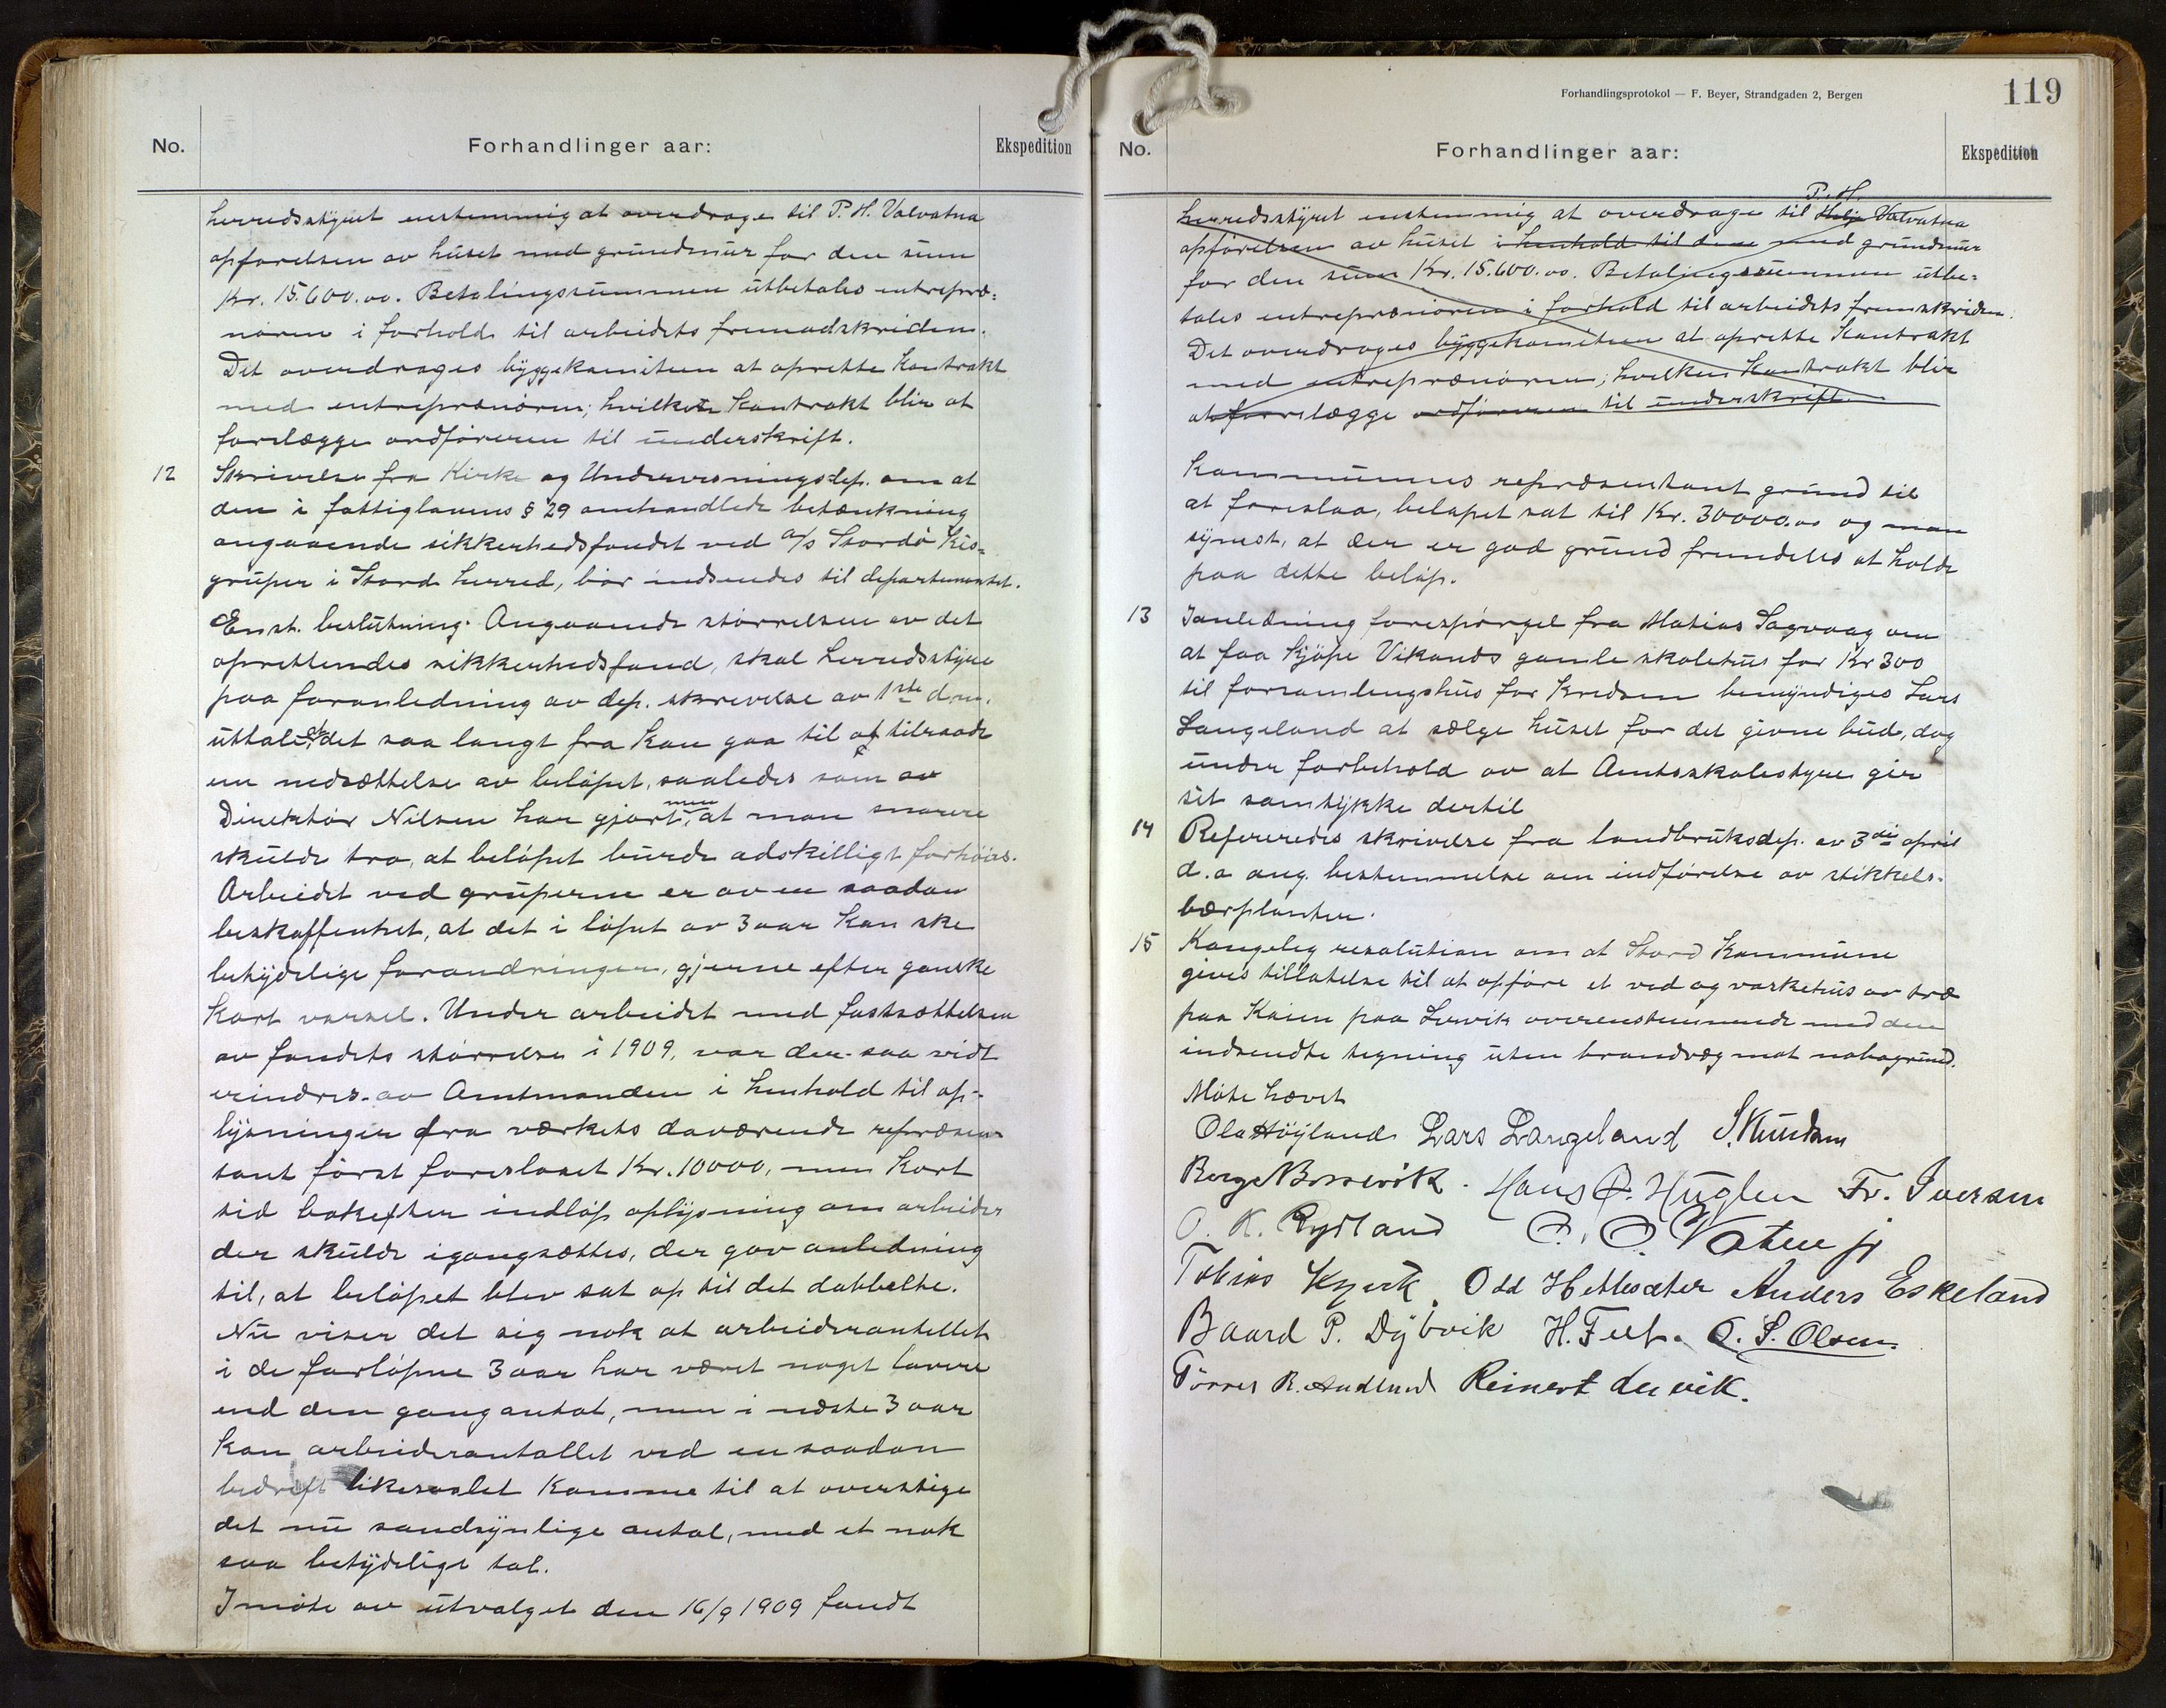 No.
Forhandlinger aar:
Ekspedition
herredsstyret enstemmig at overdrage til P. H. Valvatna
opførelsen av huset med grundmur for den sum
Kr. 15.600.00. Betalingssummen utbetales entrepre-
nøren i forhold til arbeidets fremadskriden.
Det overdrages byggekomiteen at oprette kontrakt
med entreprenøren; hvilken kontrakt blir at
forelægge ordføreren til underskrift.
12 Skrivelse fra Kirke og Undervisningsdep. om at
den i fattiglovens § 29 omhandlede betænkning
angaaende sikkerhedsfondet ved A/S Stordø Kis-
gruper i Stord herred, bør indsendes til departementet.
Enst. beslutning: Angaaende størrelsen av det
oprettendes sikkerhedsfond, skal herredsstyre
paa foranledning av dep. skrivelse av 1ste dm.
uttale, at det saa langt fra kan gaa til at tilraade
en nedsættelse av beløpet, saaledes som av
Direktør Nilsen har gjort, men at man snarere
skulde tro, at beløpet burde adskilligt forhøies.
Arbeidet ved gruperne er av en saadan
beskaffenhet, at det i løpet av 3 aar kan ske
betydelige forandringer, gjerne efter ganske
kort varsel. Under arbeidet med fastsættelsen
av fondets størrelse i 1909, var der saa vidt
erindres av Amtmanden i henhold til op-
lysninger fra værkets daværende repræsen-
tant først foreslaaet Kr. 10000, men kort
tid bakefter indløp oplysning om arbeider
der skulde igangsættes, der gav anledning
til, at beløpet blev sat op til det dobbelte.
Nu viser det sig nok at arbeiderantallet
i de forløpne 3 aar har været noget lavere
end den gang antat, men i næste 3 aar
kan arbeiderantallet ved en saadan
bedrift likesaalet komme til at overstige
det nu sandsynlige antal, med et nok
saa betydelige tal.
I møte av utvalget den 16/9 1909 fandt
Forhandlingsprotokol — F. Beyer, Strandgaden 2, Bergen
119
No.
Forhandlinger aar:
Ekspedition
P. H.
herredsstyret enstemmig at overdrage til Helje Valvatna
opførelsen av huset i henhold til dem med grundmur
for den sum Kr. 15.600.00. Betalingssummen utbe-
tales entreprenøren i forhold til arbeidets fremskriden.
Det overdrages byggekomiteen at oprette kontrakt
med entreprenøren; hvilken kontrakt blir
at forelægge ordføreren til underskrift.
kommunens repræsentant grund til
at foreslaa, beløpet sat til Kr. 30000.00 og man
synest, at der er god grund fremdeles at holde
paa dette beløp.
13 Ianledning forespørgel fra Matias Sagvaag om
at faa kjøpe Vikands gamle skolehus for Kr 300
til forsamlingshus for kredsen bemyndiges Lars
Langeland at sælge huset for det givne bud, dog
under forbehold av at Amtsskolestyre gir
sit samtykke dertil
14 Refereredes skrivelse fra landbruksdep. av 3die april
d.a ang. bestemmelse om indførelse av stikkels-
bærplanter.
15 Kongeleg resolution om at Stord Kommune
gives tillatelse til at opføre et ved og vaskehus av træ
paa Kaien paa Lervik overenstemmende med den
indsendte tegning uten brandvæg mot nabogrund.
Møte hævet
Ola Høyland Lars Langeland S. Knudsen
Berge Børsevik. Hans O. Huglen Fr. Iversen
O. K. Rydland O. O. Vatne jr
Tobias Kyvik. Odd Hetlesæter Anders Eskeland
Baard P. Dybvik H. Feet. O. S. Olsen.
Tørres B. Audlund Reinert Lervik.